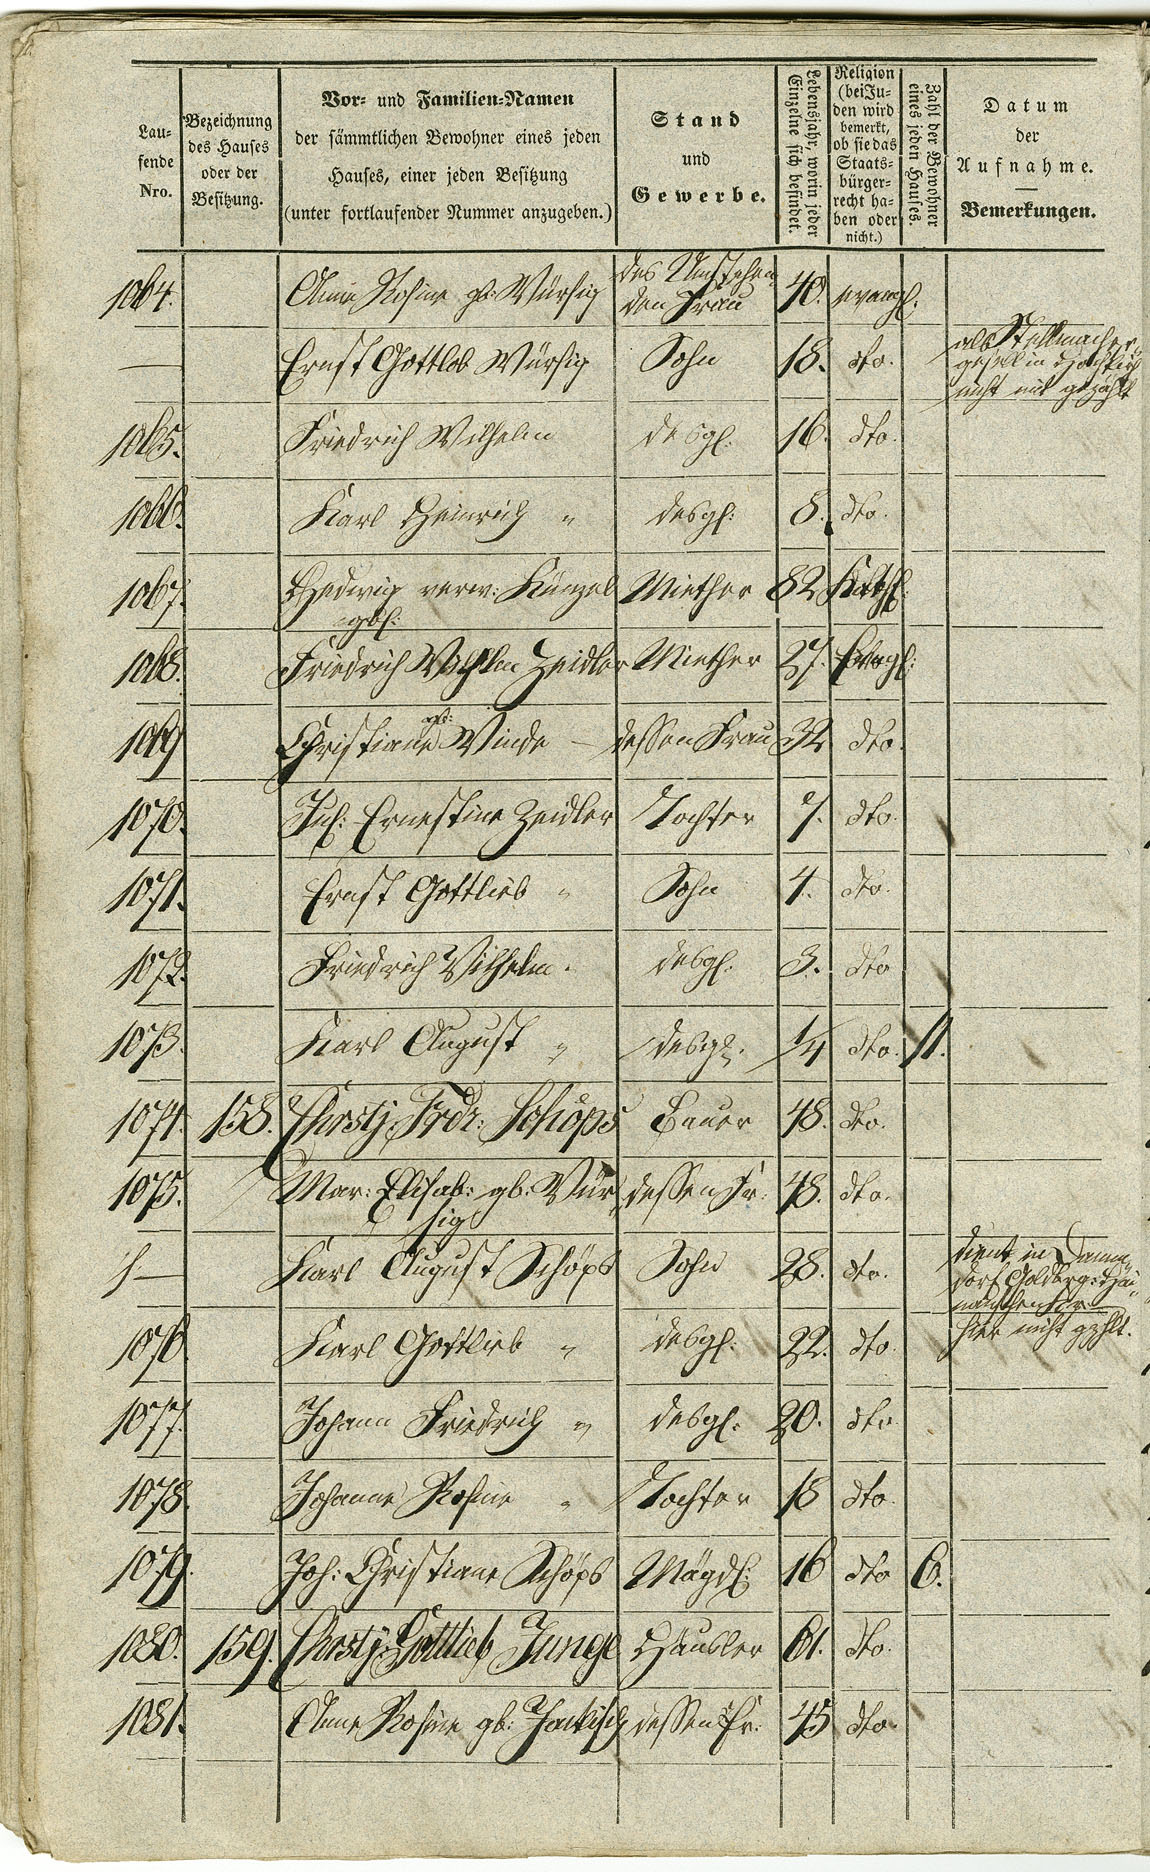 Lau-
fende
Nro.
Bezeichnung
des Hauses
oder der
Besitzung.
Vor- und Familien-Namen
der sämmtlichen Bewohner eines jeden
Hauses, einer jeden Besitzung
(unter fortlaufender Nummer anzugeben.)
Stand
und
Gewerbe.
Lebensjahr, worin jeder
Einzelne sich befindet.
Religion
(bei Ju-
den wird
bemerkt,
ob sie das
Staats-
bürger-
recht ha-
ben oder
nicht.)
Zahl der Bewohner
eines jeden Hauses.
Datum
der
Aufnahme.
Bemerkungen.
1064. Anne Rosine gb: Würsig des Umstehen den Frau 40. evangl:
— Ernst Gottlob Würsig Sohn 18. dto. als Stellmacher-
gesell in
nicht mit gezählt
1065. Friedrich Wilhelm desgl: 16. dto.
1066. Karl Heinrich " desgl: 8. dto.
1067. Hedwig verw: Künzel Miether 82 Kathl:
gbl:
1068. Friedrich Wilhelm Zeidler Miether 27. Evagl:
1069 Christiane gb: Winde — dessen Frau 32 dto.
1070. Ernestine Zeidler Tochter 7. dto.
1071. Ernst Gottlieb " Sohn 4. dto.
1072. Friedrich Wilhelm " desgl. 3. dto
1073. Karl August " desgl. 1/4 dto. 11.
1074. 158. Chrstj. Frdr: Schöps Bauer 48. dto.
1075. Mar: Elisab: gb: Wür- dessen Fr: 48. dto.
sig
— Karl August Schöps Sohn 28. dto. dient in
dorf Goldberg: Hai-
nauschen
hier nicht gzhlt.
1076. Karl Gottlieb " desgl: 22. dto.
1077. Johann Friedrich " desgl: 20. dto
1078. Johanne Rosine " Tochter 18 dto.
1079. Joh: Christiane Schöps Mägdl: 16 dto 6.
1080. 159. Chrstj. Gottlieb Junge Häusler 61. dto.
1081. Anne Rosine gb: Jackisch dessen Fr: 45 dto.